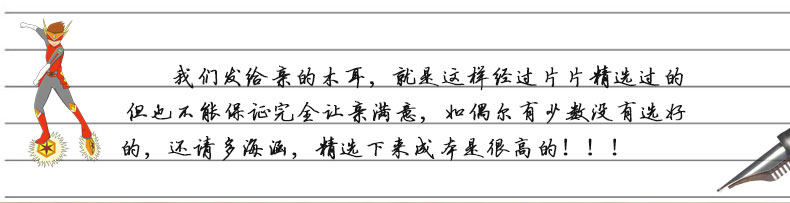 我们发给亲的木耳，就是这样经过片片精选过的
但也不能保证完全让亲满意，如偶尔有少数没有选好
的，还请多海涵，精选下来成本是很高的！！！